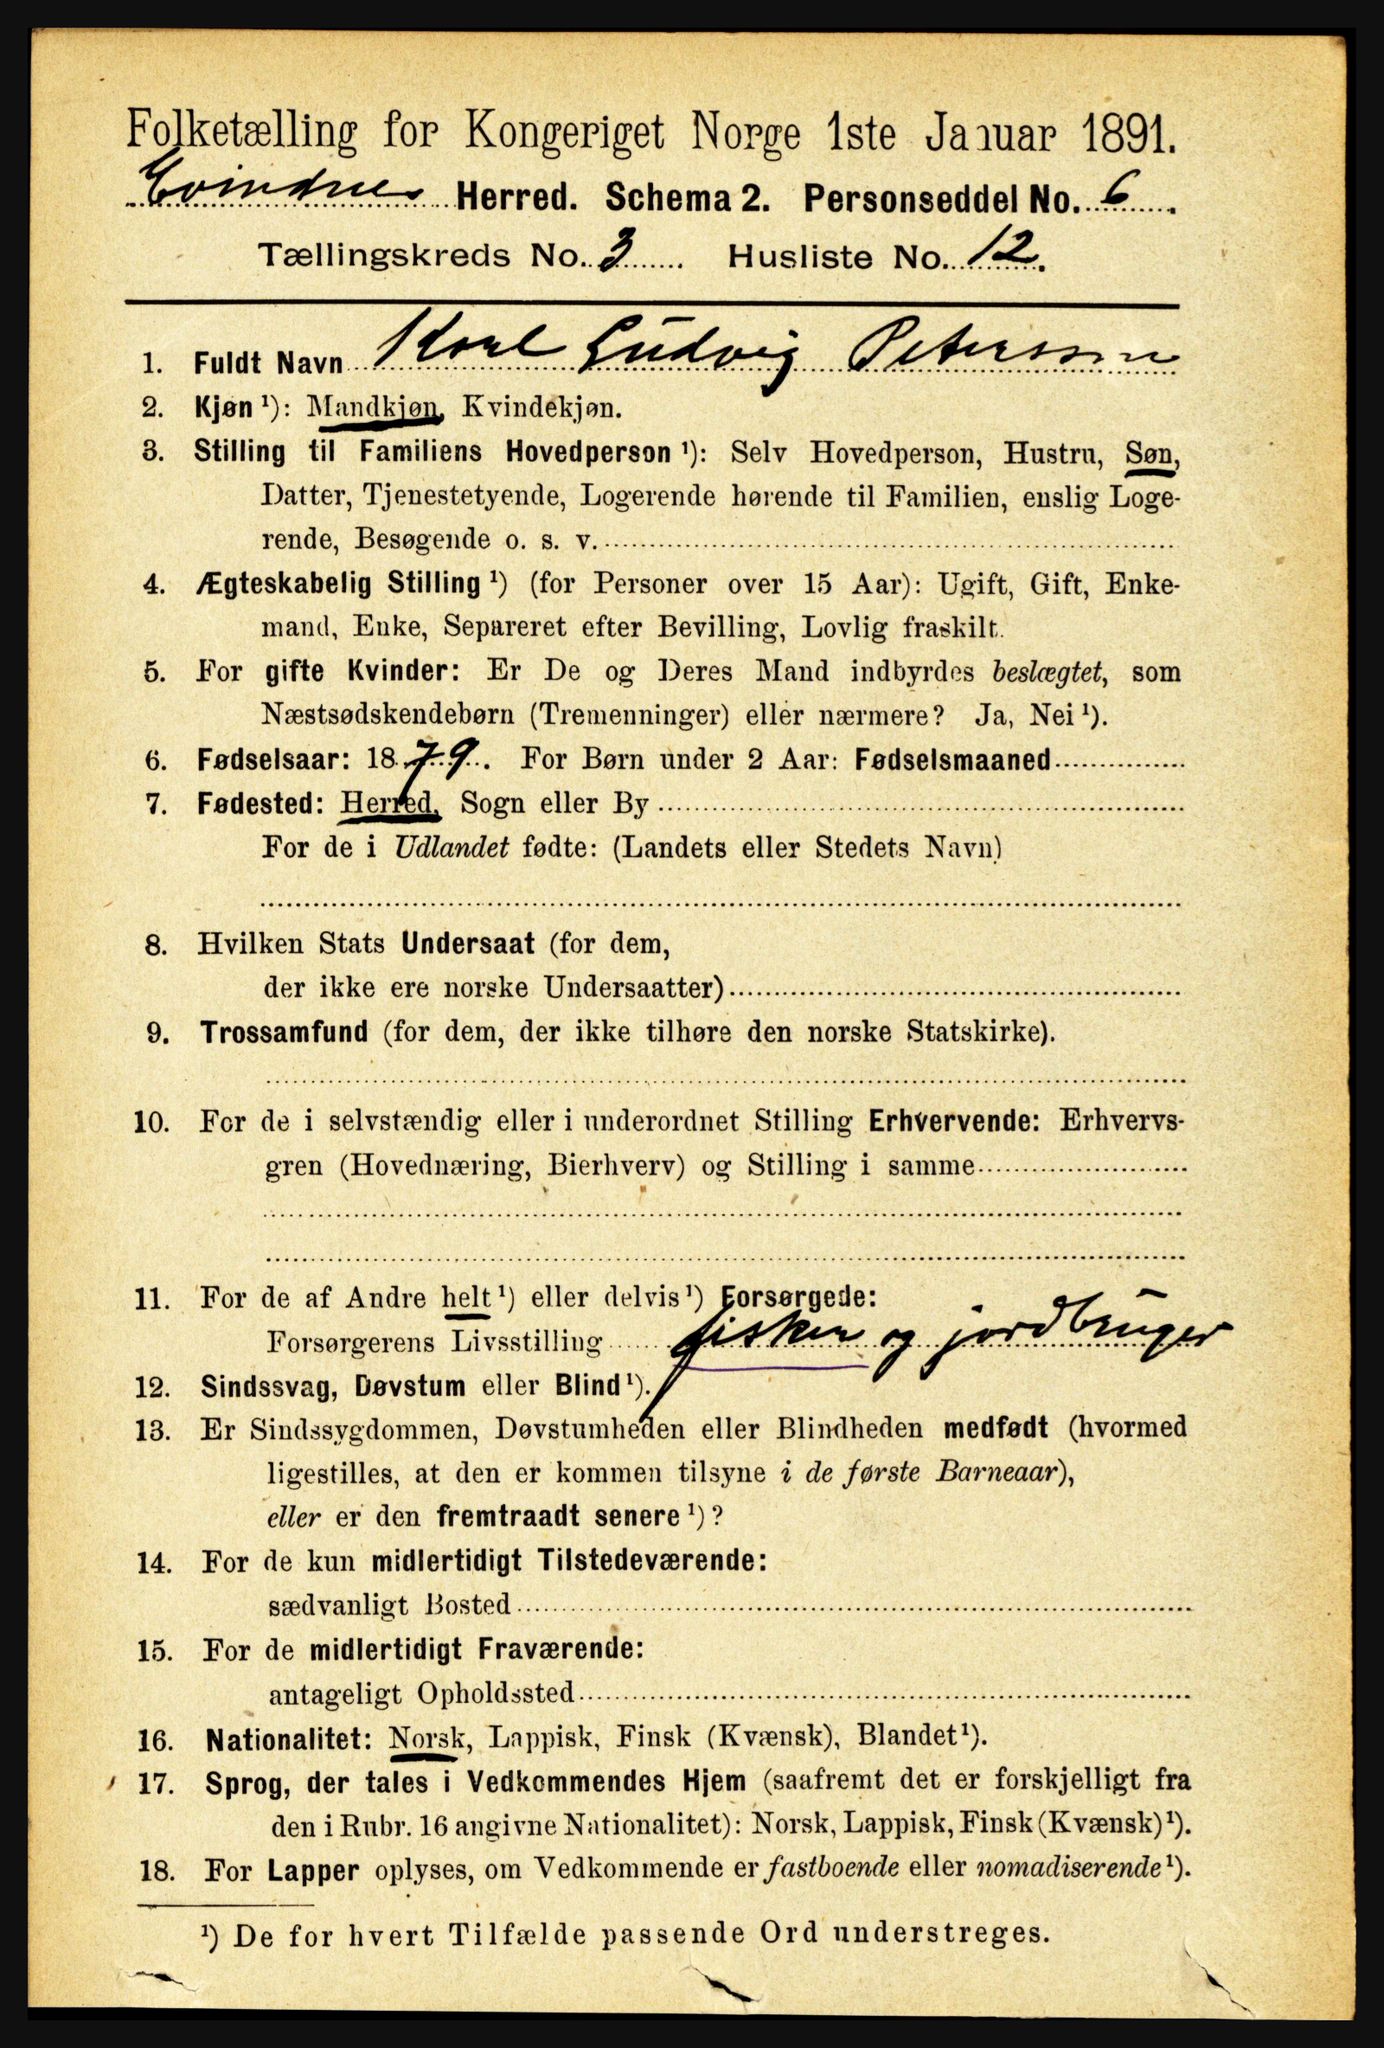 Folketælling for Kongeriget Norge 1ste Januar 1891.
Evindnes Herred. Schema 2. Personseddel No. 6.
Tællingskreds No. 3 Husliste No. 12.
1. Fuldt Navn Karl Ludvig Peterssen
2. Kjøn ¹): Mandkjøn, Kvindekjøn.
3. Stilling til Familiens Hovedperson ¹): Selv Hovedperson, Hustru, Søn,
Datter, Tjenestetyende, Logerende hørende til Familien, enslig Loge-
rende, Besøgende o. s. v.
4. Ægteskabelig Stilling ¹) (for Personer over 15 Aar): Ugift, Gift, Enke-
mand, Enke, Separeret efter Bevilling, Lovlig fraskilt.
5. For gifte Kvinder: Er De og Deres Mand indbyrdes beslægtet, som
Næstsødskendebørn (Tremenninger) eller nærmere? Ja, Nei ¹).
6. Fødselsaar: 1879. For Børn under 2 Aar: Fødselsmaaned
7. Fødested: Herred, Sogn eller By
For de i Udlandet fødte: (Landets eller Stedets Navn)
8. Hvilken Stats Undersaat (for dem,
der ikke ere norske Undersaatter)
9. Trossamfund (for dem, der ikke tilhøre den norske Statskirke).
10. For de i selvstændig eller i underordnet Stilling Erhvervende: Erhvervs-
gren (Hovednæring, Bierhverv) og Stilling i samme
11. For de af Andre helt ¹) eller delvis ¹) Forsørgede:
Forsørgerens Livsstilling fisker og jordbruger
12. Sindssvag, Døvstum eller Blind ¹).
13. Er Sindssygdommen, Døvstumheden eller Blindheden medfødt (hvormed
ligestilles, at den er kommen tilsyne i de første Barneaar),
eller er den fremtraadt senere ¹)?
14. For de kun midlertidigt Tilstedeværende:
sædvanligt Bosted
15. For de midlertidigt Fraværende:
antageligt Opholdssted
16. Nationalitet: Norsk, Lappisk, Finsk (Kvænsk), Blandet ¹).
17. Sprog, der tales i Vedkommendes Hjem (saafremt det er forskjelligt fra
den i Rubr. 16 angivne Nationalitet): Norsk, Lappisk, Finsk (Kvænsk) ¹).
18. For Lapper oplyses, om Vedkommende er fastboende eller nomadiserende ¹).
¹) De for hvert Tilfælde passende Ord understreges.